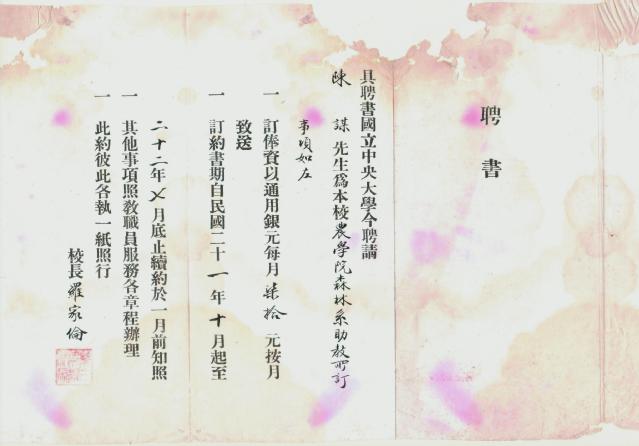 聘書
具聘書國立中央大學今聘請
陳謀先生爲本校農學院森林系助教所訂
事項如左
一 訂俸資以通用銀元每月柒拾元按月
致送
一 訂約書期自民國二十一年十月起至
二十二年七月底止續約於一月前知照
一 其他事項照教職員服務各章程辦理
一 此約彼此各執一紙照行
校長羅家倫